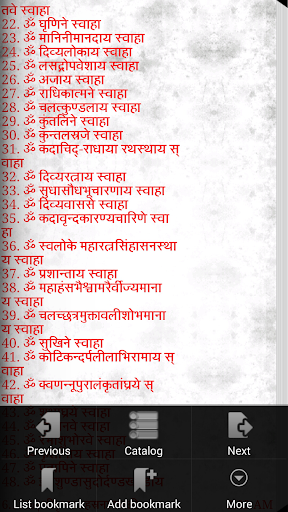 तवे स्वाहा
22. ॐ घृणिने स्वाहा
23. ॐ मानिनीमानदाय स्वाहा
24. ॐ दिव्यलोकाय स्वाहा
25. ॐ लसद्गोपवेशाय स्वाहा
26. ॐ अजाय स्वाहा
27. ॐ राधिकात्मने स्वाहा
28. ॐ चलत्कुण्डलाय स्वाहा
29. ॐ कुंतलिने स्वाहा
30. ॐ कुन्तलस्रजे स्वाहा
31. ॐ कदाचिद्-राधाया रथस्थाय स्
वाहा
32. ॐ दिव्यरत्नाय स्वाहा
33. ॐ सुधासौधभूचारणाय स्वाहा
34. ॐ दिव्यवाससे स्वाहा
35. ॐ कदावृन्दकारण्यचारिणे स्वा
हा
36. ॐ स्वलोके महारत्नसिंहासनस्था
य स्वाहा
37. ॐ प्रशान्ताय स्वाहा
38. ॐ महाहंसभैश्चामरैर्वीज्यमाना
य स्वाहा
39. ॐ चलच्छत्रमुक्तावलीशोभमा
नाय स्वाहा
40. ॐ सुखिने स्वाहा
41. ॐ कोटिकन्दर्पलीलाभिरामाय स्
वाहा
42. ॐ क्वणन्नूपुरालंकृतांघ्रये स्
वाहा
Previous Catalog Next
List bookmark Add bookmark More